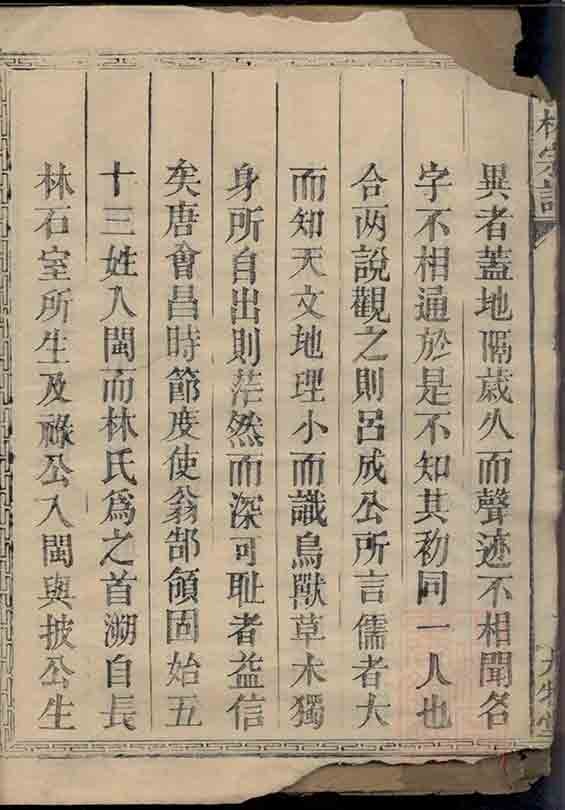 林宗譜
異者蓋地隔歲久而聲迹不相聞名
字不相通於是不知其初同一人也
合两說觀之則呂成公所言儒者大
而知天文地理小而識鳥獸草木獨
身所自出則茫然而深可耻者益信
矣唐會昌時節度使翁郜領固始五
十三姓入閩而林氏為之首溯自長
林石室所生及祿公入閩與披公生